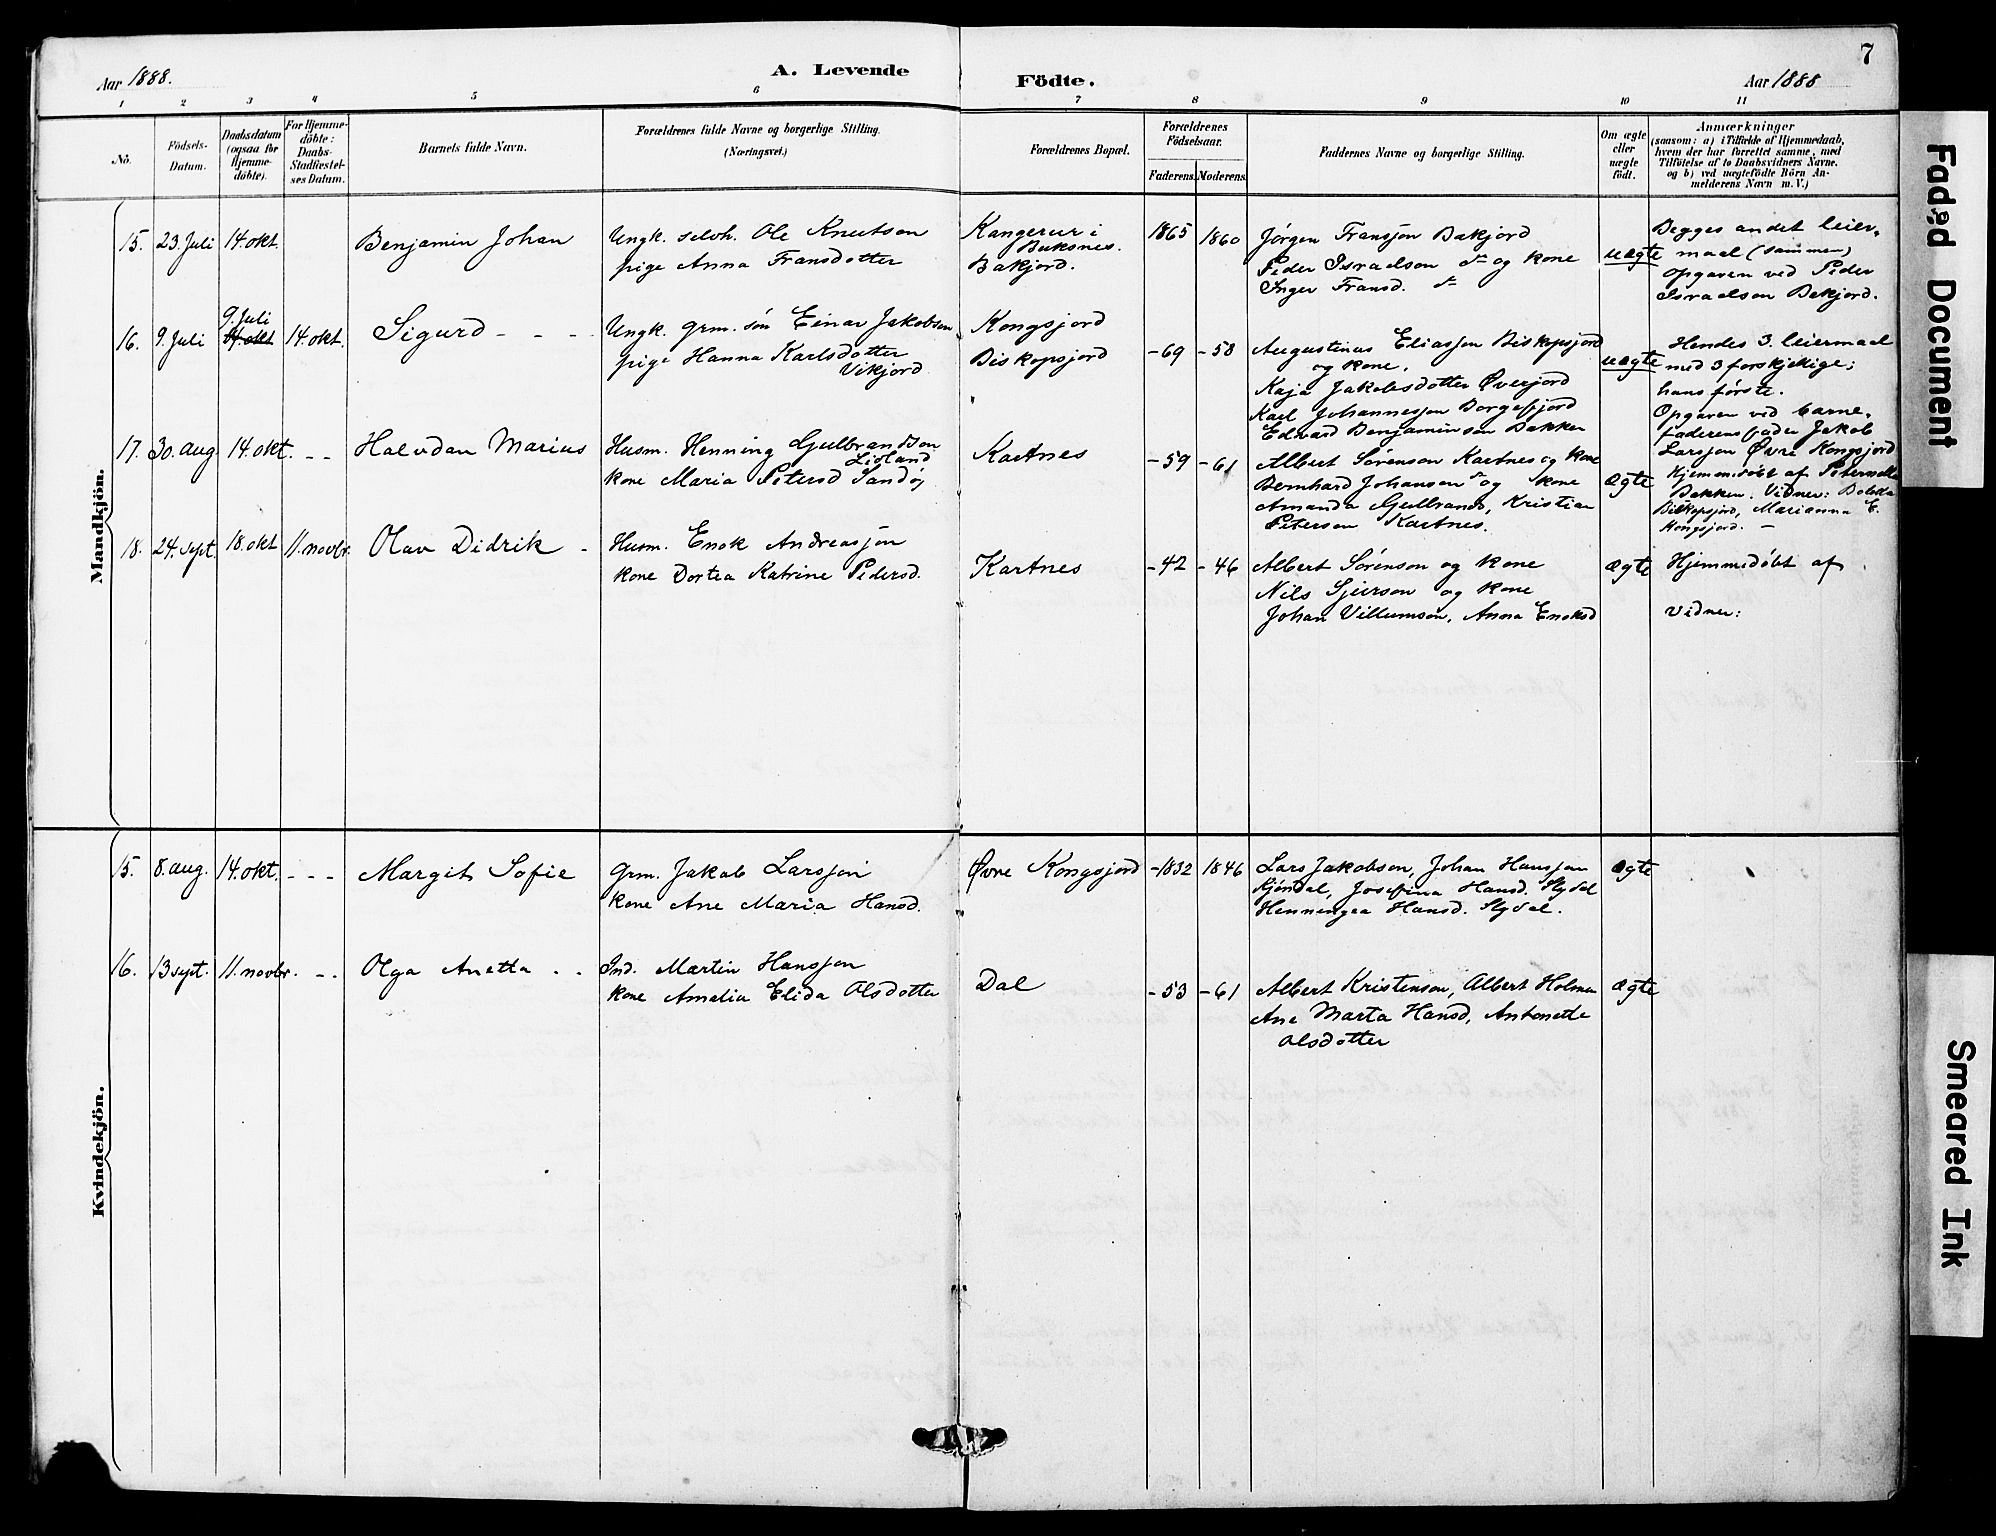 7
Aar 1888.
A. Levende
Födte.
Aar 1888
1 2 3 4 5 6 7 8 9 10 11
No.
Födsels-
Datum.
Daabsdatum
(ogsaa for
Hjemme-
döbte).
For Hjemme-
döbte:
Daabs-
Stadfæstel-
ses Datum.
Barnets fulde Navn.
Forældrenes fulde Navne og borgerlige Stilling.
(Næringsvei.)
Forældrenes Bopæl.
Forældrenes
Födselsaar.
Faderens. Moderens.
Faddernes Navne og borgerlige Stilling.
Om ægte
eller
uægte
födt.
Anmærkninger
(saasom: a) i Tilfælde af Hjemmedaab,
hvem der har forrettet samme, med
Tilföielse af to Daabsvidners Navne.
og b) ved uægtefödte Börn An-
melderens Navn m. V.)
Mandkjön.
15. 23. Juli 14. okt. Benjamin Johan
Ungk. selvh. Ole Knutson
pige Anna Fransdotter
Kangerur i
Buksnes.
Bakjord.
1865 1860
Jörgen Fransson Bakjord
Peder Israelson do og kone
Inger Fransd. do
uægte
Begges andet leier-
maal (sammen)
opgaven ved Peder
Israelson Bakjord.
16. 9. Juli 9. Juli
14. okt 14. okt. Sigurd - - -
Ungk. grm. sön Einar Jakobson
pige Hanna Karlsdotter
Vikjord
Kongsjord
Biskopsjord
-69 -58
Augustinus Eliasson Biskopsjord
og kone.
Kaja Jakobsdotter Øverjord
Karl Johannesson Borgefjord
Edvard Benjaminson Bakken
uægte
Hendes 3. leiermaal
med 3 forskjellige;
hans förste.
Opgaven ved barne-
faderens fader Jakob
Larsson Øvre Kongsjord
Hjemmedöbt af Peternella
Bakken. Vidner:
Biskopsjord, Marianna E.
Kongsjord. -
17. 30. aug. 14. okt. - - Halvdan Marius
Husm. Henning Gulbrandson
Lidland
kone Maria Petersd Sandöj
Kartnes
-59 -61
Albert Sörenson Kartnes og kone
Bernhard Johanson do og kone
Amanda Gulbrands, Kristian
Peterson Kartnes.
ægte
18. 24. sept. 18. okt 11. novbr. Olav Didrik -
Husm. Enok Andreasson
kone Dortea Katrine Pedersd.
Kartnes
-42 -46
Albert Sörenson og kone
Nils Sjurson og kone
Johan Villumson, Anna Enoksd
ægte
Hjemmedöbt af
vidner:
Kvindekjön.
15. 8. aug. 14. okt. - - - Margit Sofie
Grm. Jakob Larsson
kone Ane Maria Hansd.
Øvre Kongsjord
-1832 1846
Lars Jakobson, Johan Hansson
Kjöndal, Josefina Hansd. Skydal
Henningea Hansd. Skydal.
ægte
16. 13 sept. 11. novbr. - - Olga Anetta - -
Ind. Martin Hansson
kone Amalia Elida Olsdotter
Dal
-53 -61
Albert Kristenson, Albert Holmen
Ane Marta Hansd, Antonette
Olsdotter
ægte
Faded Document
Smeared Ink